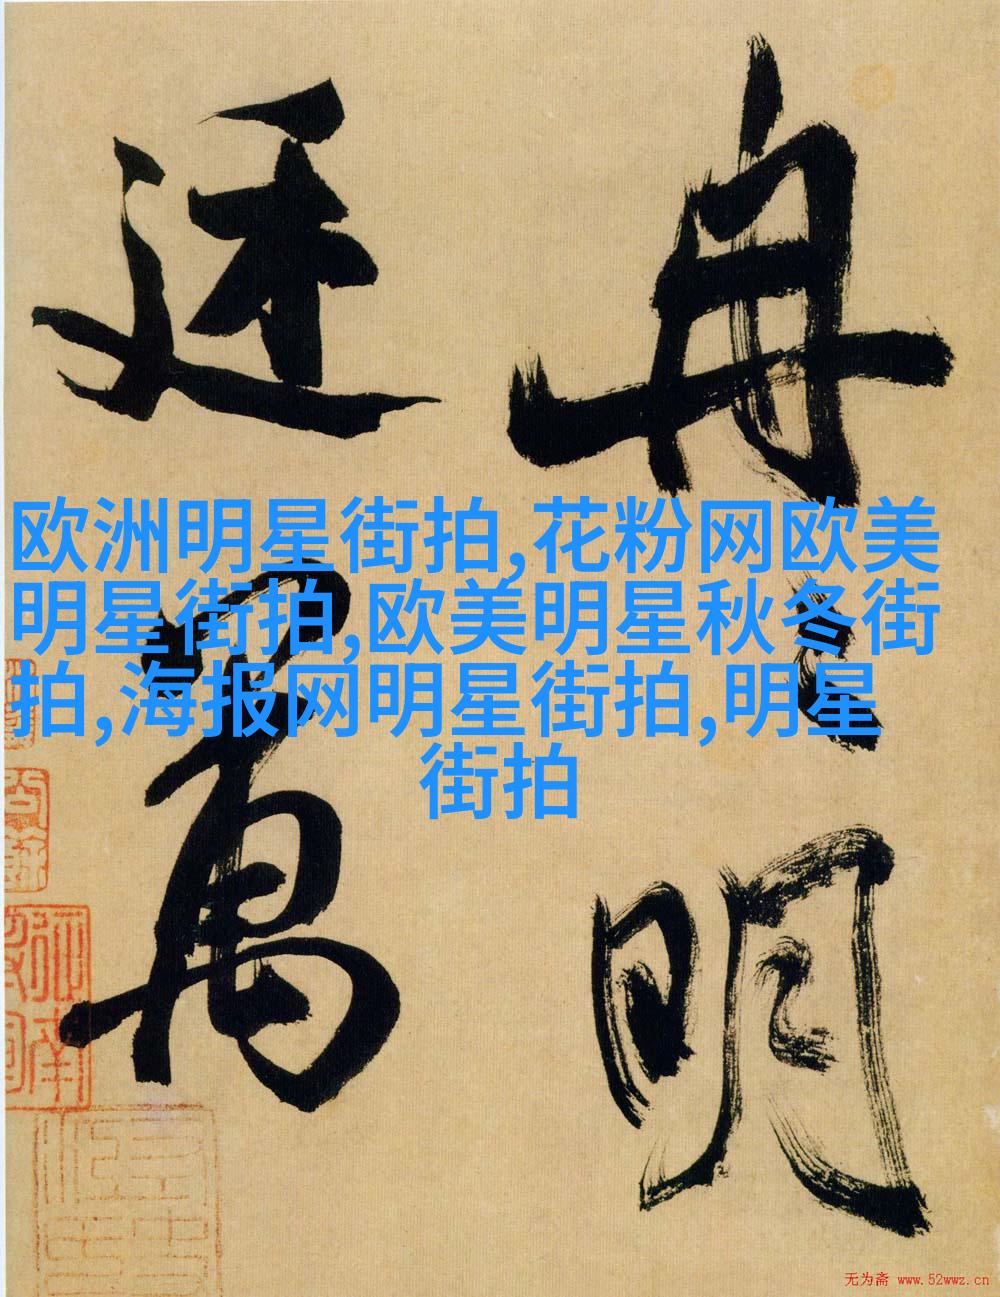 欧洲明星街拍,花粉网欧美
明星街拍,欧美明星秋冬街
拍,海报网明星街拍,明星
街拍
冉〻明
廷萬
无为斋 www.52wwz.cn